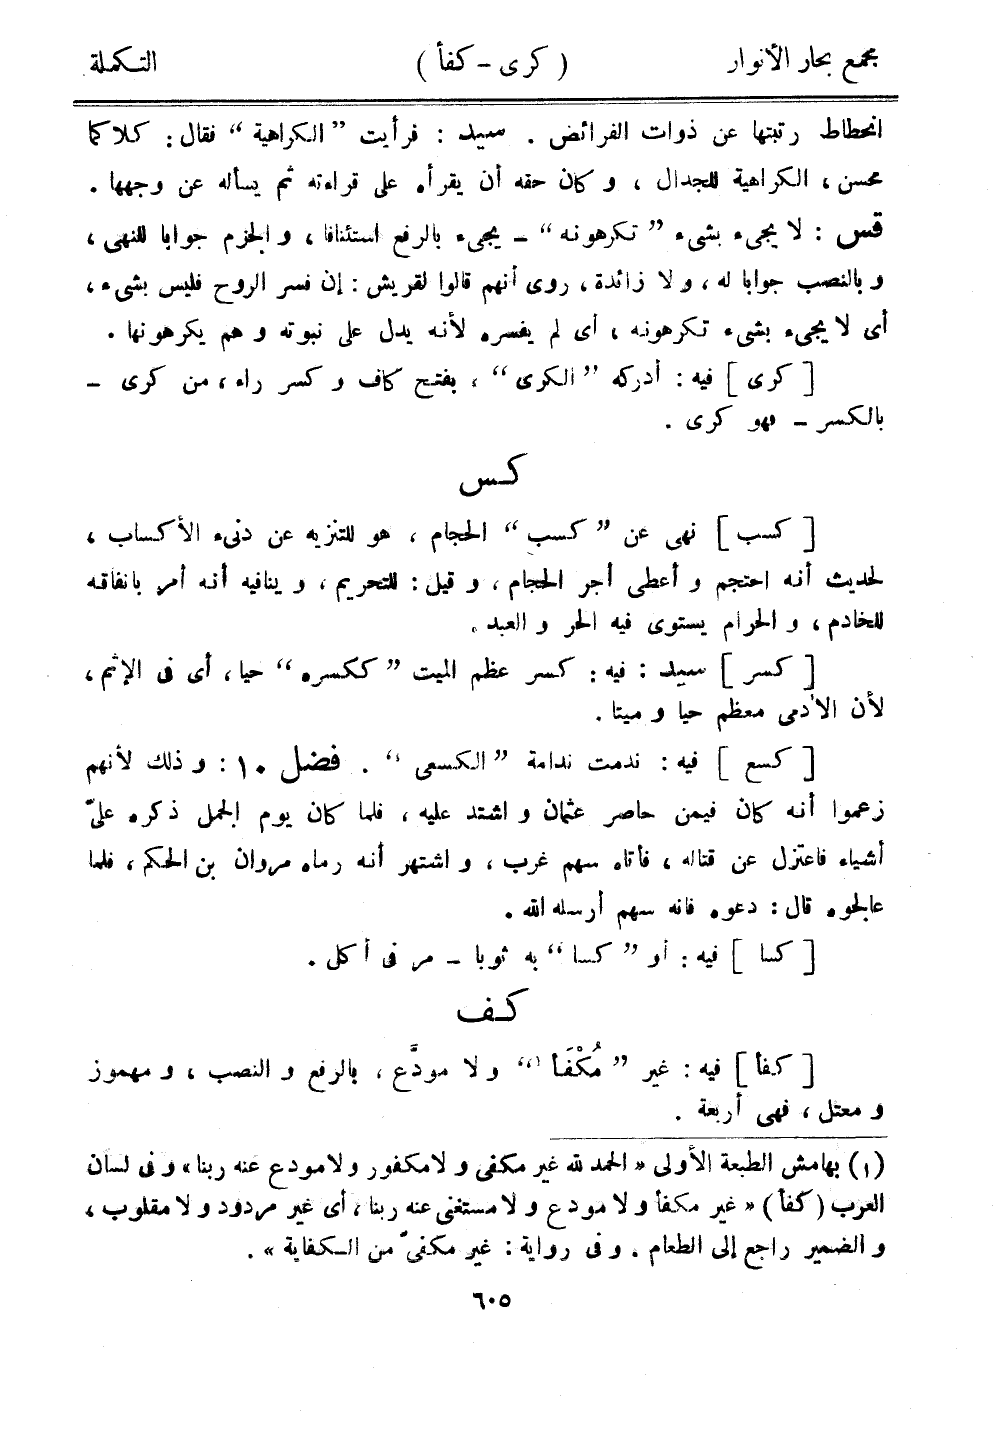 مجمع بحار الأنوار ( كرى - كفأ ) التكملة
انحطاط رتبتها عن ذوات الفرائض . سيد : فرأيت ”الكراهية“ فقال : كلاكما
محسن ، الكراهية للجدال ، و كان حقه أن يقرأه على قراءته ثم يسأله عن وجهها .
قس : لا يجىء بشىء ”تكرهونه“ – يجىء بالرفع استئنافا ، و الجزم جوابا للنهى ،
و بالنصب جوابا له ، و لا زائدة ، روى أنهم قالوا لقريش : إن فسر الروح فليس بشىء ،
أى لا يجىء بشىء تكرهونه ، أى لم يفسره لأنه يدل على نبوته و هم يكرهونها .
[ كرى ] فيه : أدركه ”الكرى“ ، بفتح كاف و كسر راء ، من كرى –
بالكسر – فهو كرى .
كس
[ كسب ] نهى عن ”كسب“ الحجام ، هو للتنزيه عن دنىء الأكساب ،
لحديث أنه احتجم و أعطى أجر الحجام ، و قيل : للتحريم ، و ينافيه أنه أمر بانفاقه
للخادم ، و الحرام يستوى فيه الحر و العبد .
[ كسر ] سيد : فيه : كسر عظم الميت ”ككسره“ حيا ، أى فى الإثم ،
لأن الآدمى معظم حيا و ميتا .
[ كسع ] فيه : ندمت ندامة ”الكسعى“ . فضل ١٠ : و ذلك لأنهم
زعموا أنه كان فيمن حاصر عثمان و اشتد عليه ، فلما كان يوم الجمل ذكره علىّ
أشياء فاعتزل عن قتاله ، فأتاه سهم غرب ، و اشتهر أنه رماه مروان بن الحكم ، فلما
عالجوه قال : دعوه فانه سهم أرسله الله .
[ كسا ] فيه : أو ”كسا“ به ثوبا – مر فى أكلى .
كف
[ كفأ ] فيه : غير ”مُكْفَأ“ و لا مودَّع ، بالرفع و النصب ، و مهموز
و معتل ، فهى أربعة .
(١) بهامش الطبعة الأولى « الحمد لله غير مكفى و لا مكفور و لا مودع عنه ربنا » و فى لسان
العرب ( كفأ ) « غير مكفأ و لا مودع و لا مستغنى عنه ربنا ، أى غير مردود و لا مقلوب ،
و الضمير راجع إلى الطعام . و فى رواية : غير مكفىّ من الكفاية » .
٦٠٥